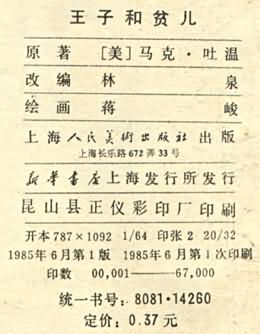 王子和贫儿
原著 [美]马克·吐温
改编 林泉
绘画 蒋峻
上海人民美術出版社 出版
上海长乐路672弄33号
新华書店上海发行所发行
昆山县正仪彩印厂印刷
开本 787×1092 1/64 印张 2 20/32
1985年6月第1版 1985年6月第1次印刷
印数 00,001——67,000
统一书号: 8081·14260
定价: 0.37 元